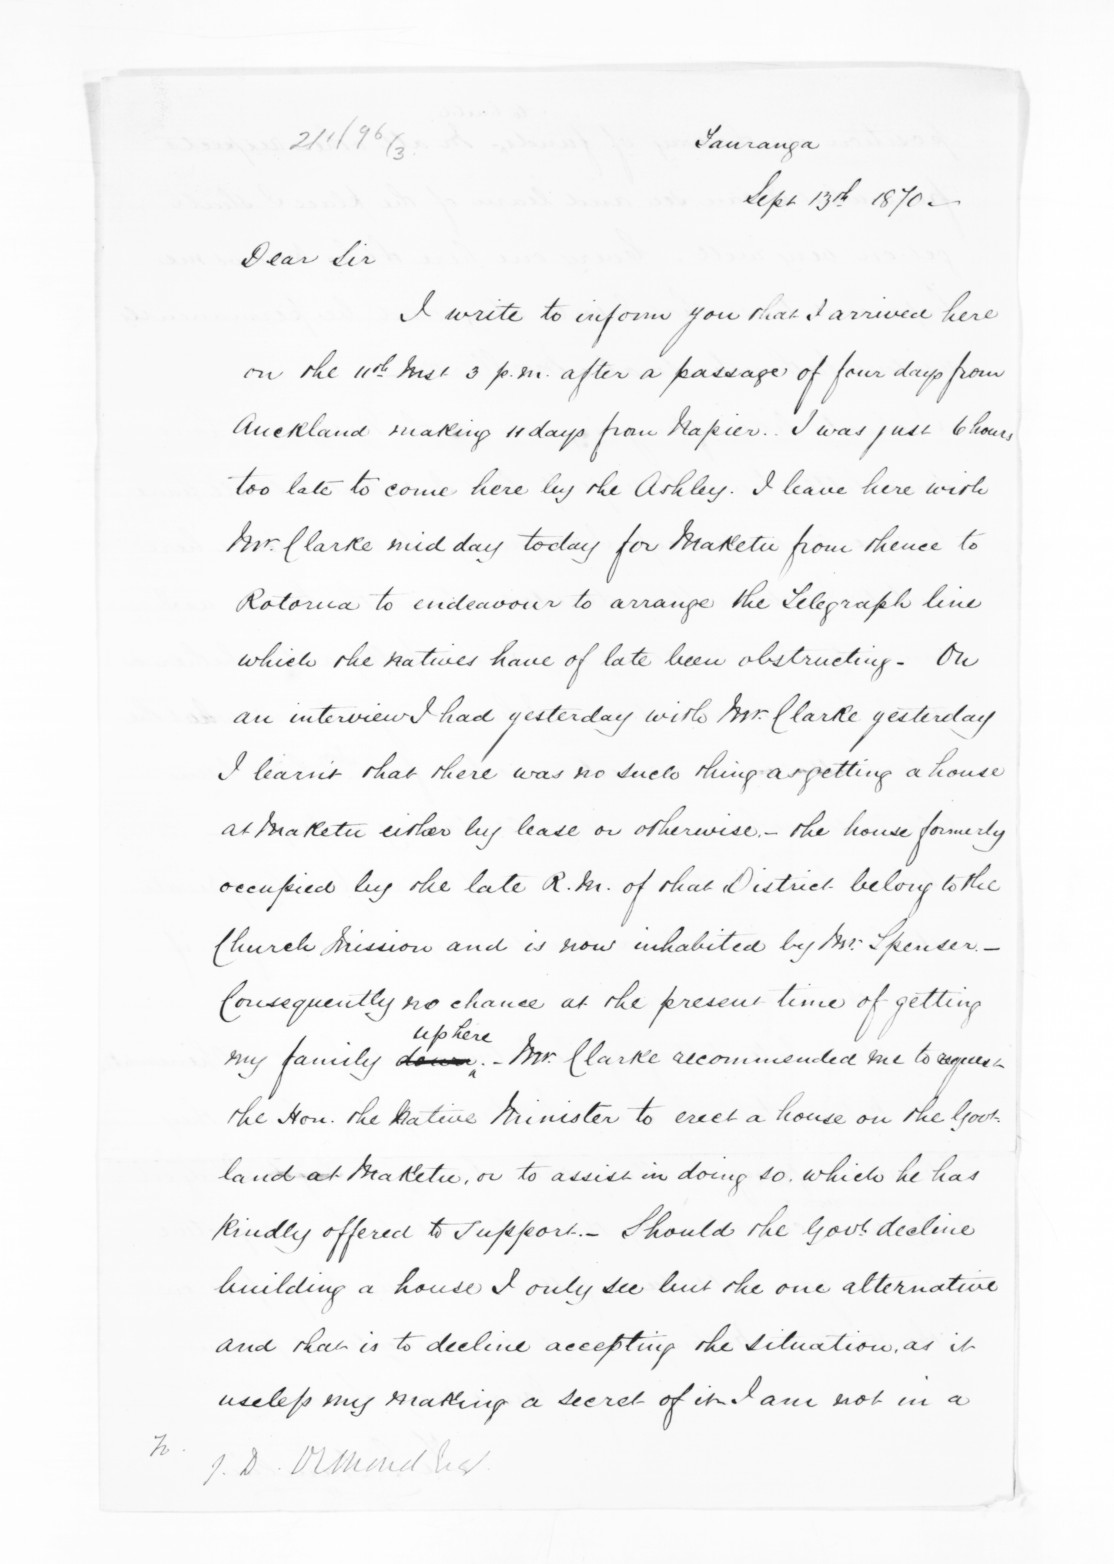 Tauranga
Sept 13th 1870
Dear Sir
I write to inform you that I arrived here
on the 11th Inst 3 p.m. after a passage of four days from
Auckland making 11 days from Napier.. I was just 6 hours
too late to come here by the Ashley. I leave here with
Mr. Clarke mid day today for Maketu from thence to
Rotorua to endeavour to arrange the Telegraph line
which the natives have of late been obstructing - On
an interview I had yesterday with Mr. Clarke yesterday
I learnt that there was no such thing as getting a house
at Maketu either by lease or otherwise. - the house formerly
occupied by the late R.M. of that District belong to the
Church Mission and is now inhabited by Mr. Spenser. -
Consequently no chance at the present time of getting
up here
my family down. - Mr. Clarke recommended me to request
the Hon. the Native Minister to erect a house on the Govt.
land at Maketu, or to assist in doing so. which he has
kindly offered to support. - Should the Govt. decline
building a house I only see but the one alternative
and that is to decline accepting the situation, as it
useless my making a secret of it I am not in a
To.
J. D. Ormond Esq.